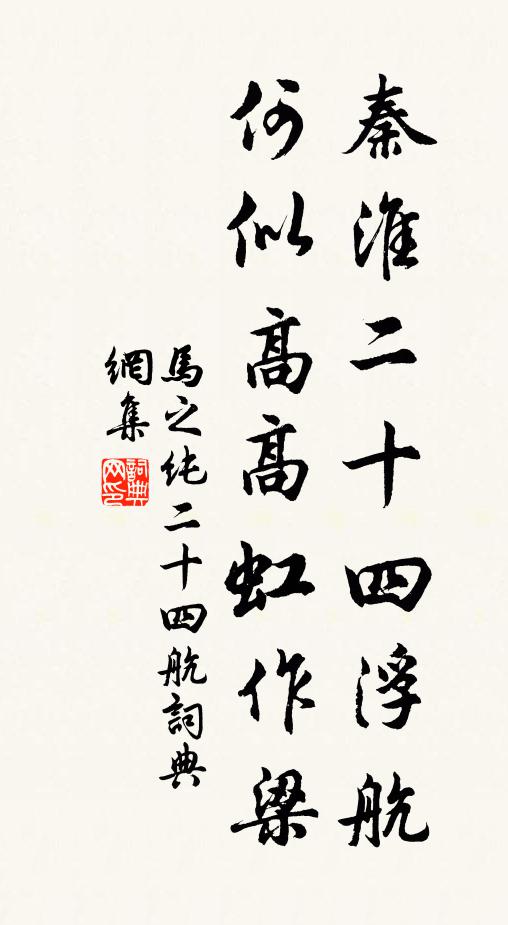 秦淮二十四浮航
何似高高虹作梁
馬之純二十四航詞典
網集
詞典网印